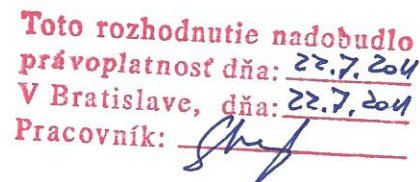 Toto rozhodnutie nadobudlo
právoplatnosť dňa: 22.7.2011
V Bratislave, dňa: 22.7.2011
Pracovník: